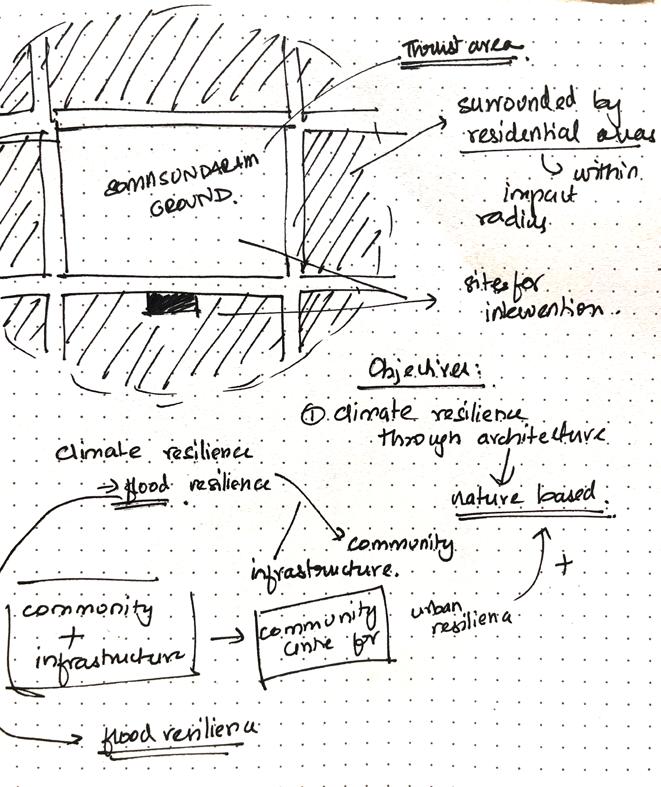 Thrust area.
SOMASUNDARAM
GROUND.
surrounded by
residential areas
within
impact
radius.
sites for
intervention.
Objectives:
① climate resilience
through architecture
nature based.
+
climate resilience
→ flood resilience
community
infrastructure.
community
+
infrastructure
community
centre for
urban
resilience
flood resilience